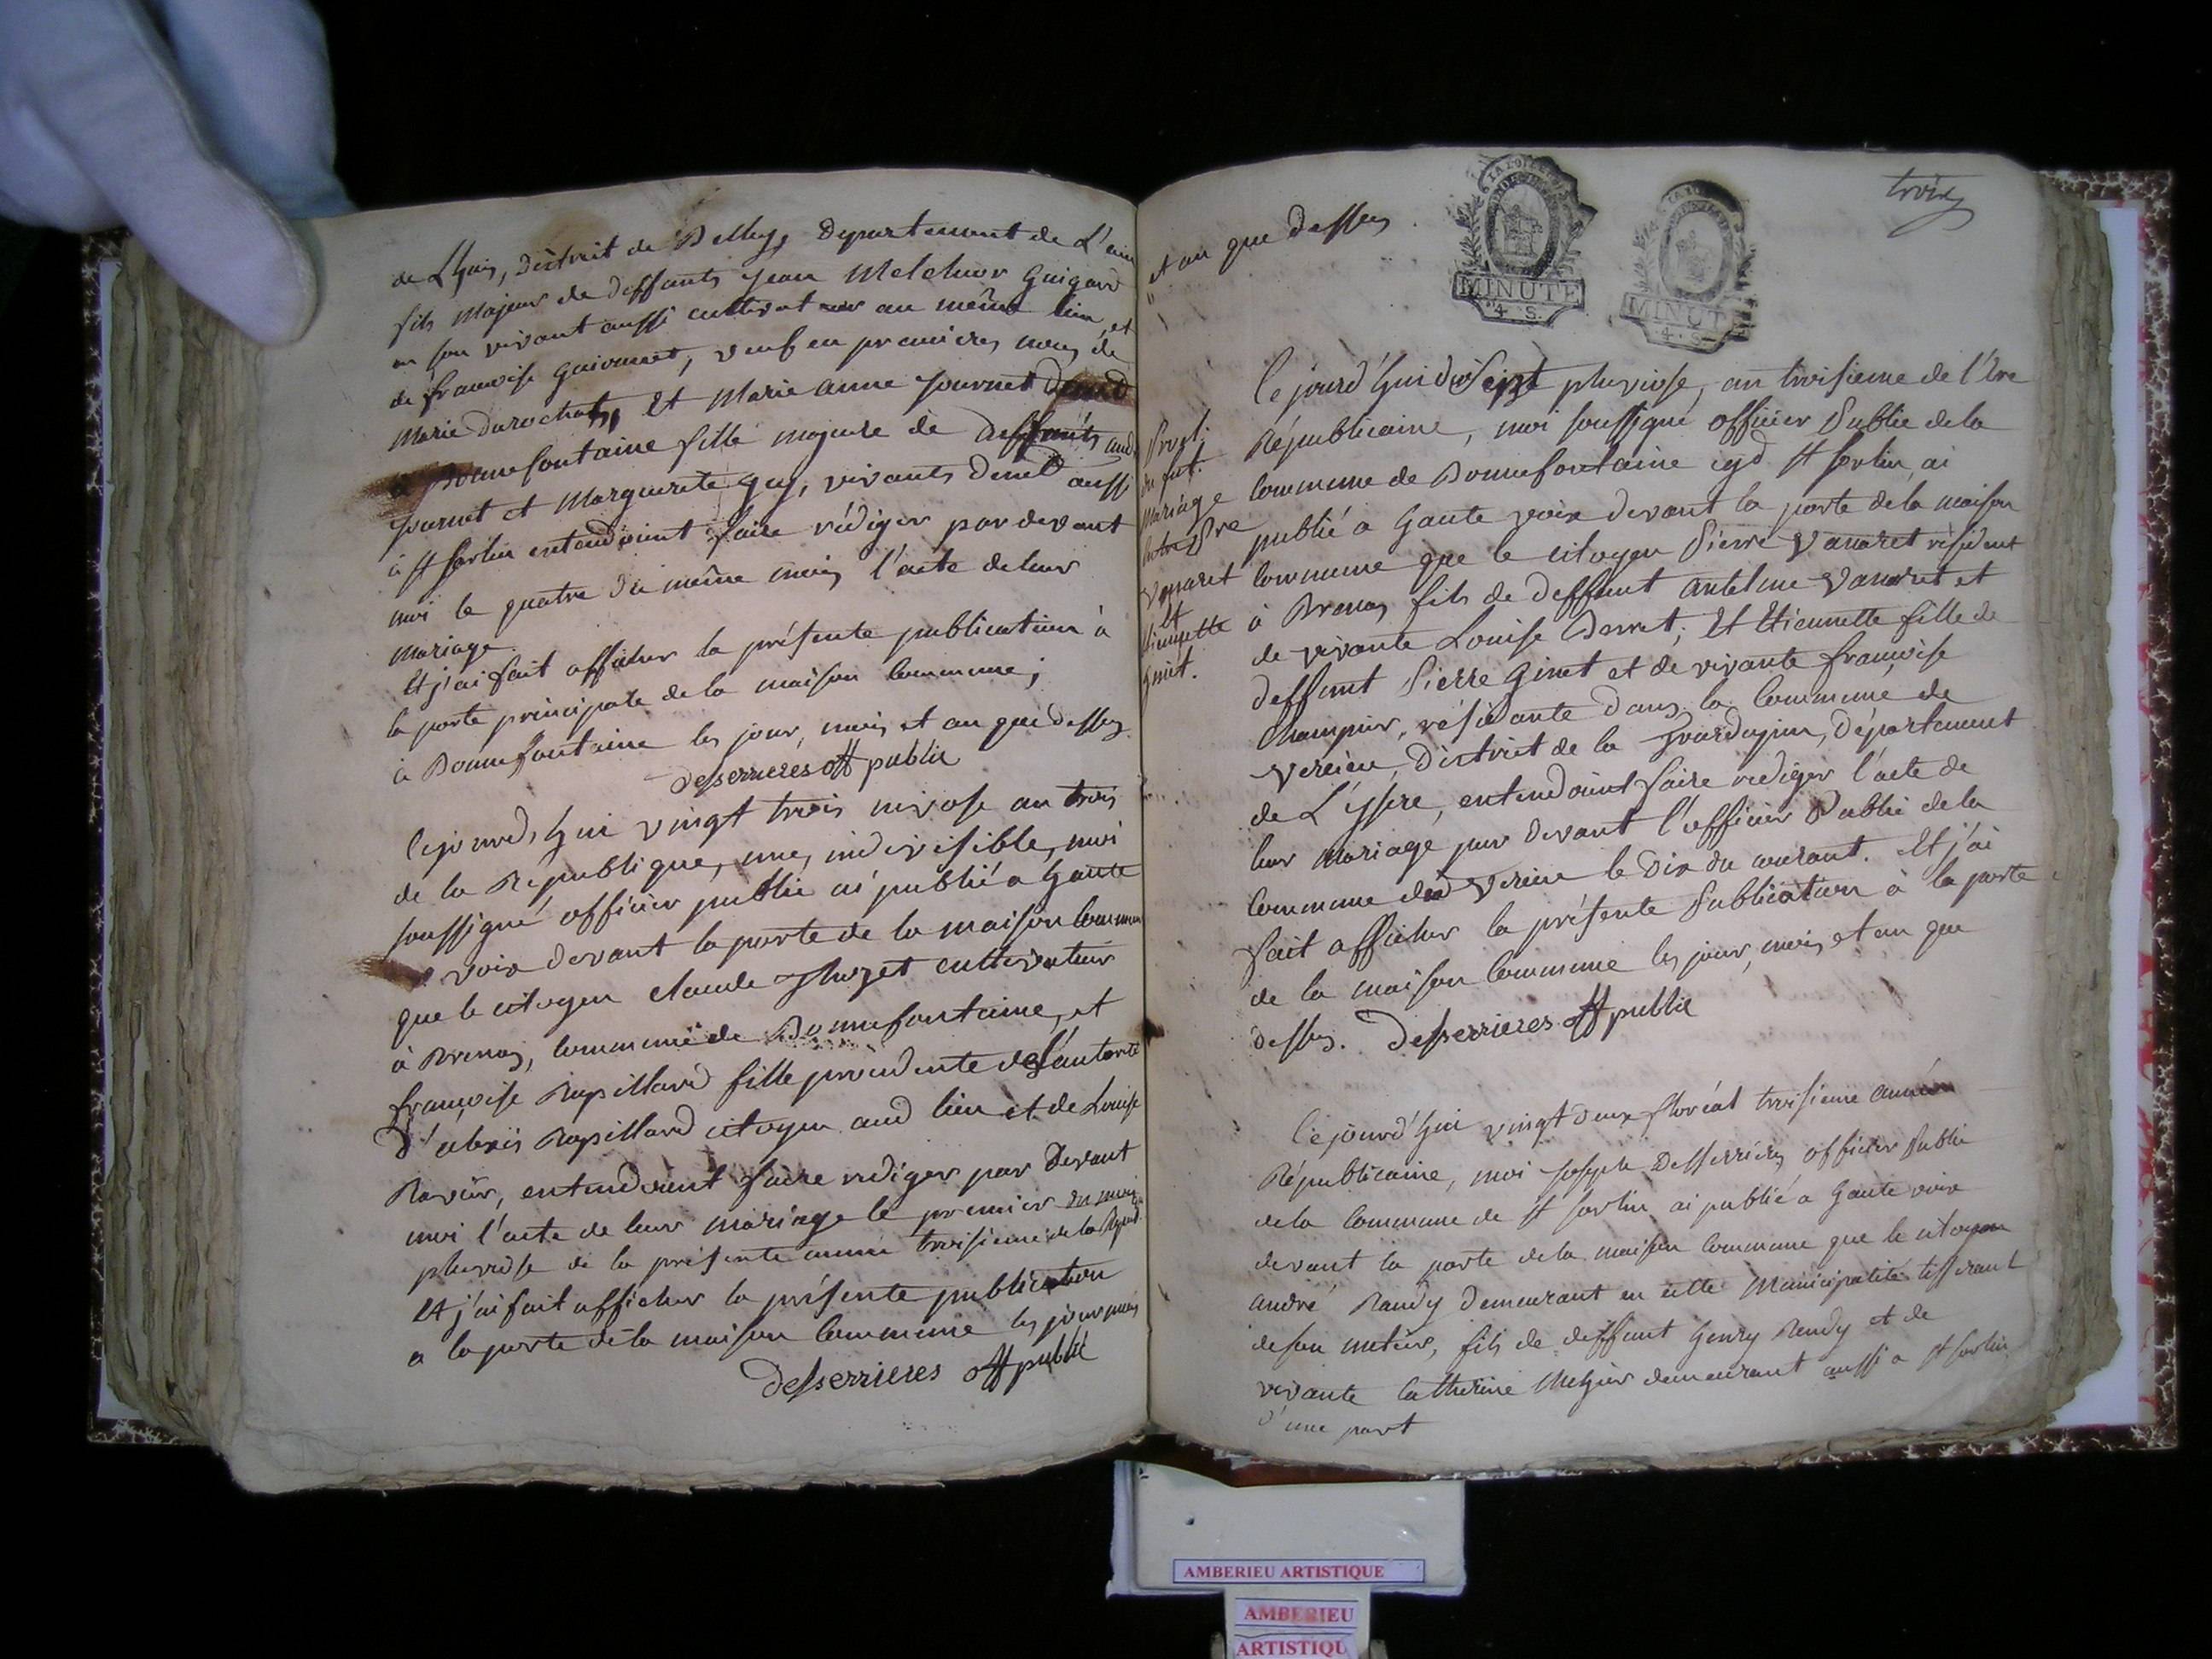 de Lhuis, district de Belley, departement de L'ain
fils Majeur de deffunts Jean Melchior Guigard
en son vivant aussi cultivateur au même lieu, et
de françoise Guironnet, veuf en premieres noces de
Marie Durochat, Et Marie anne Journet demt
à Bonnefontaine fille majeure de deffunts
Journet et Marguerite Guy, vivants demt aussi
à st Sorlin entendoient faire rédiger par devant
moi le quatre du même mois l'acte de leur
mariage.
Et j'ai fait afficher la présente publication à
la porte principale de la maison Commune;
à Bonnefontaine les jour, mois et an que dessus
desserrieres off public
Cejourd'hui vingt trois nivose an trois
de la République, une, indivisible, moi
soussigné officier public ai publié a haute
voix devant la porte de la maison Commune
que le citoyen claude cultivateur
à Brenas, commune de Bonnefontaine, et
françoise Rapillard fille procedente de l'autorité
D'alexis Rapillard citoyen aud lieu et de Louise
Ravier, entendoient faire rediger par devant
moi l'acte de leur mariage le premier du mois
pluviose de la présente année troisieme de la Repub.
Et j'ai fait afficher la présente publication
a la porte de la maison Commune les jour mois
desserrieres off public
et an que dessus.
MINUTE
4. S.
MINUTE
4. S.
trois
Publ:
du fut.
Mariage
Entre Pre
Vanaret
Et
Etiennette
Ginet.
Cejourd'hui dixsept pluviose, an troisieme de l'Ere
Républicaine, moi soussigné officier Public de la
Commune de Bonnefontaine cyd. st Sorlin, ai
publié a haute voix devant la porte de la maison
Commune que le citoyen Pierre Vanaret résident
à Brenas fils de deffunt antelme Vanaret et
de vivante Louise Derret; Et Etiennette fille de
deffunt Pierre Ginet et de vivante françoise
Champier, résidante dans la Commune de
district de la département
de L'Issere, entendoient faire rediger l'acte de
leur Mariage par devant l'officier Public de la
Commune dud le dix du courant. Et j'ai
fait afficher la présente Publication à la porte
de la maison Commune les jour, mois, et an que
dessus. desserrieres off public
Cejourd'hui vingt deux floréal troisieme année
Républicaine, moi Joseph Desserrieres officier Public
dela Commune de st Sorlin ai publié a haute voix
devant la porte dela maison Commune que le citoyen
andré Randy demeurant en cette Municipalité tisserant
de son metier, fils de deffunt henry Randy et de
vivante Catherine demeurant aussi a st Sorlin
d'une part
AMBERIEU ARTISTIQUE
AMBERIEU
ARTISTIQU